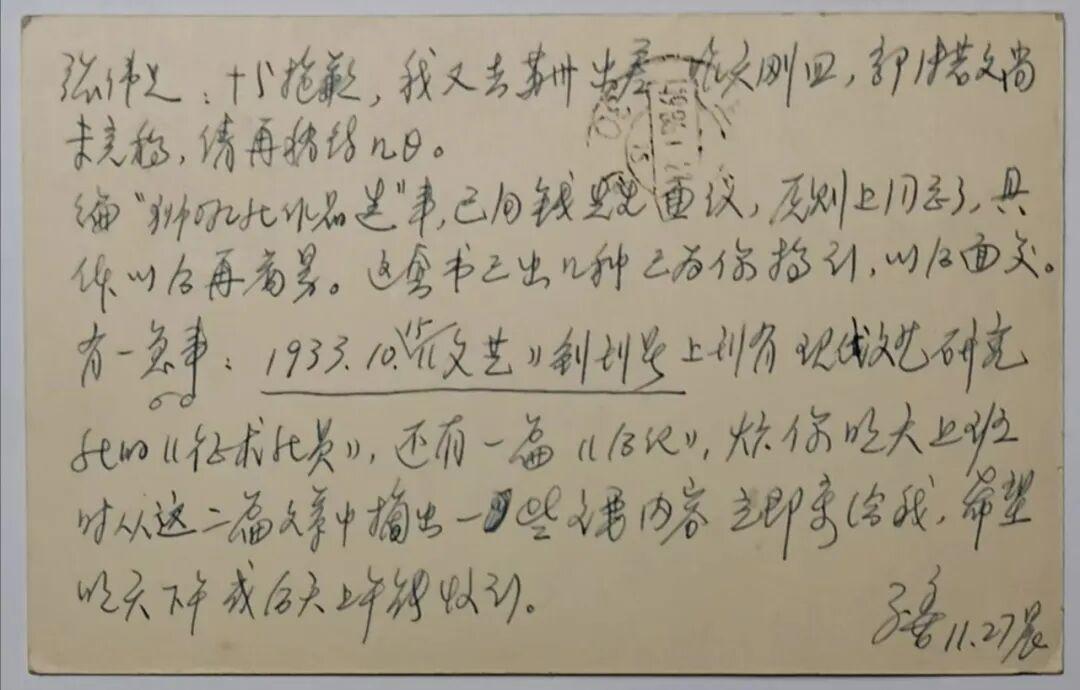 张伟兄：十分抱歉，我又去苏州出差，昨天刚回，郭沫若文尚
未完稿，请再稍待几日。
编“狮吼社作品选”事，已同钱兄商议，原则上同意了，具
体以后再商量。这套书已出几种已为你搞到，以后面交。
有一急事：1933.10.15《文艺》创刊号上刊有现代文艺研究
社的《征求社员》，还有一篇《后记》，烦你明天上班
时从这二篇文章中摘出一些主要内容立即寄给我，希望
明天下午或后天上午能收到。
子善 11.27晨